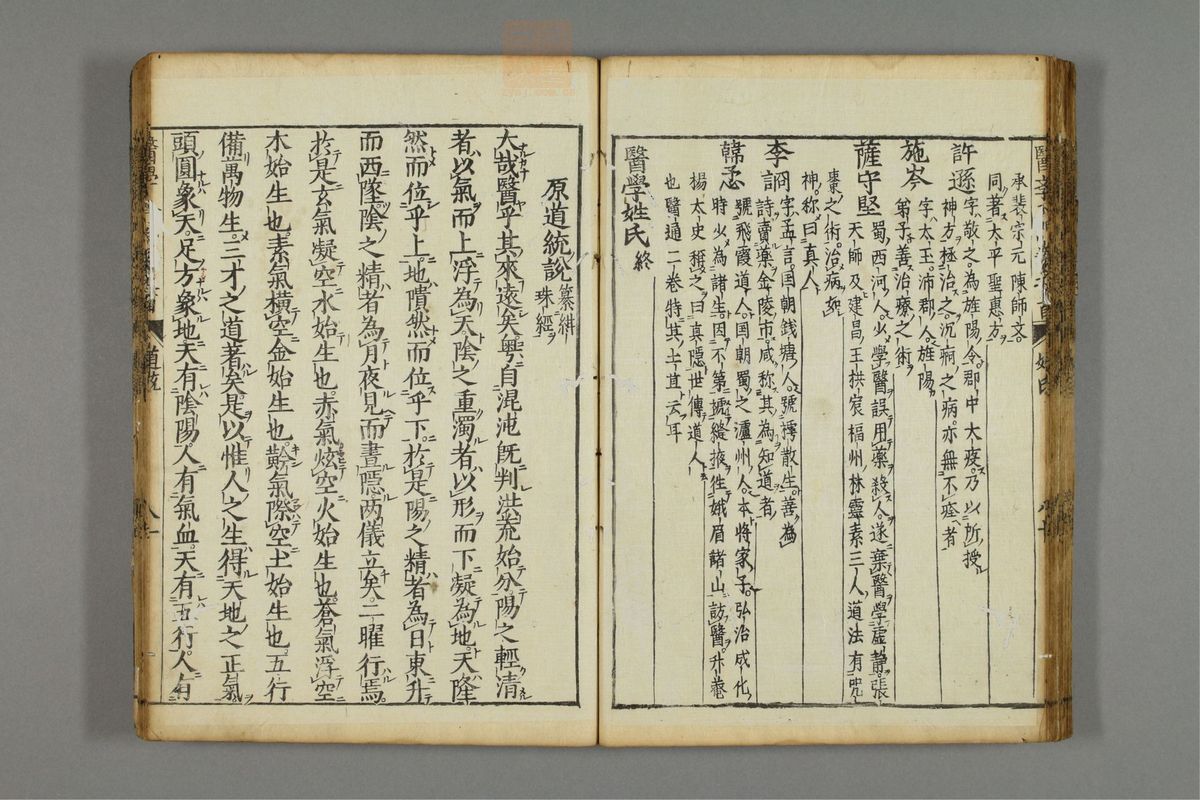 承裴宗元陳師文
同著太平聖惠方
許遜 字敬之為旌陽令郡中大疫乃以所授
神方拯治之沉痾之病亦無不痊者
施岑 字太王沛郡人旌陽
弟子善治療之術
薩守堅 蜀西河人少學醫誤用藥殺人遂棄醫學虛靜張
天師及建昌王拱宸福州林靈素三人道法有呪
棗之術治病
神称曰真人
李詗 字孟言国朝錢塘人號樗散生善為
詩賣藥金陵市咸称其為知道者
韓𢘅 號飛霞道人国朝蜀之瀘州人本将家子弘治成化
時少為諸生因不第褫縫掖徃峨眉諸山訪醫升菴
楊太史稱之曰真隱世傳道人
也醫通二卷特其土苴云耳
醫學姓氏終
原道統說 纂緝
珠經
大哉醫乎其來遠矣粵自混沌既判洪荒始分陽之輕清
者以氣而上浮為天陰之重濁者以形而下凝為地天隆
然而位乎上地隤然而位乎下於是陽之精者為日東升
而西墜陰之精者為月夜見而晝隱两儀立矣二曜行焉
於是玄氣凝空水始生也赤氣炫空火始生也蒼氣浮空
木始生也素氣橫空金始生也黅氣際空土始生也五行
備萬物生三才之道著矣是以惟人之生得天地之正氣
頭圓象天足方象地天有陰陽人有氣血天有五行人有